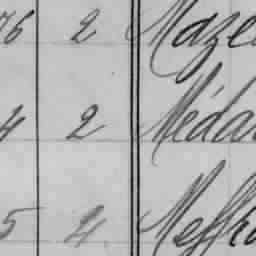 76 2 Maze
4 2 Méda
5 4 Meffr